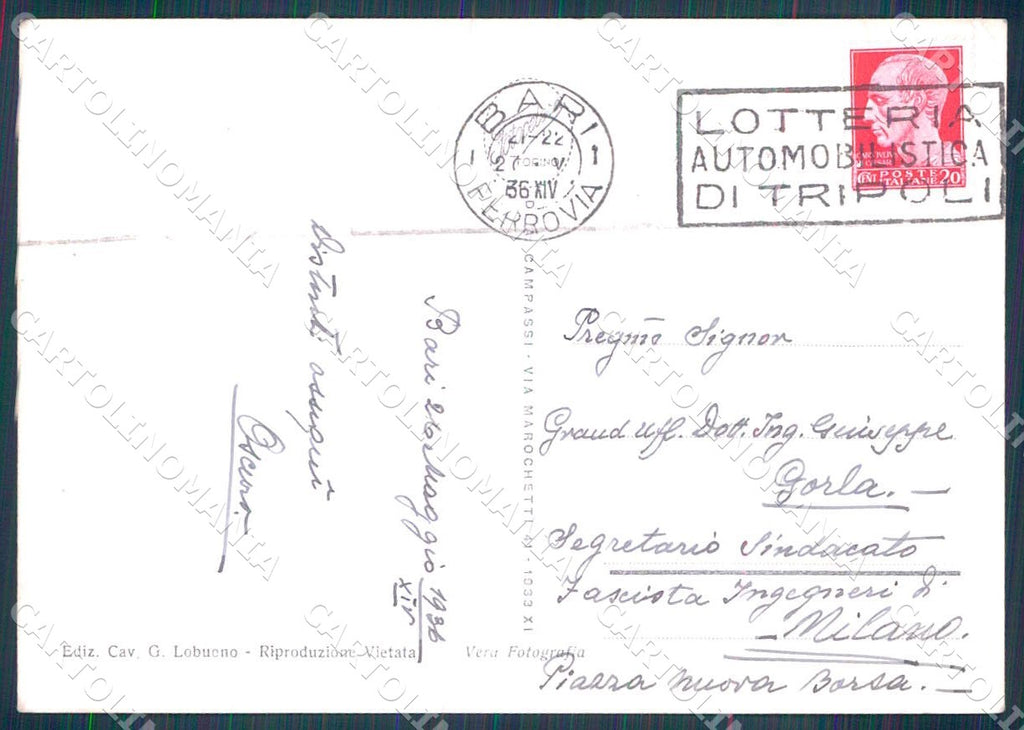 BARI
21-22
27 V
36 XIV
FERROVIA
1 1
TORINO
LOTTERIA
AUTOMOBILISTICA
DI TRIPOLI
POSTE
CENT ITALIANE 20
Distinti ossequi
Bari 26 Maggio 1936
XIV
CAMPASSI - VIA MAROCHETTI 41 - 1933 XI
Pregmo Signor
Grand Uff. Dott. Ing. Giuseppe
Gorla. -
Segretario Sindacato
Fascista Ingegneri di
- Milano.
Piazza Nuova Borsa. -
Ediz. Cav. G. Lobuono - Riproduzione Vietata
Vera Fotografia
CARTOLINOMANIA